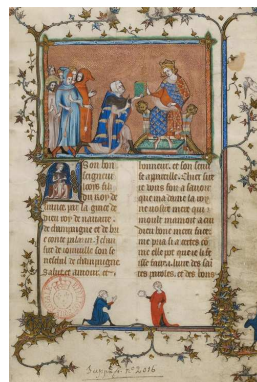 A Son bon
seigneur
looys filz
du roy de
france par la grace de
dieu roy de nauarre
de champaigne et de brie
conte palazin. Jehan
sire de joinuille son se
neschal de champaigne
salut et amour. et
honneur. et son seruise
appareillie. Chier sire
je vous foiz a sauoir
que ma dame la roy
ne vostre mere qui
moult mamoit a cui
dieu bone merci face
me pria si a certes co
me elle pot que je li fe
isse faire liure des sai
ntes paroles et des bons
Suppl. fr. N° 2016